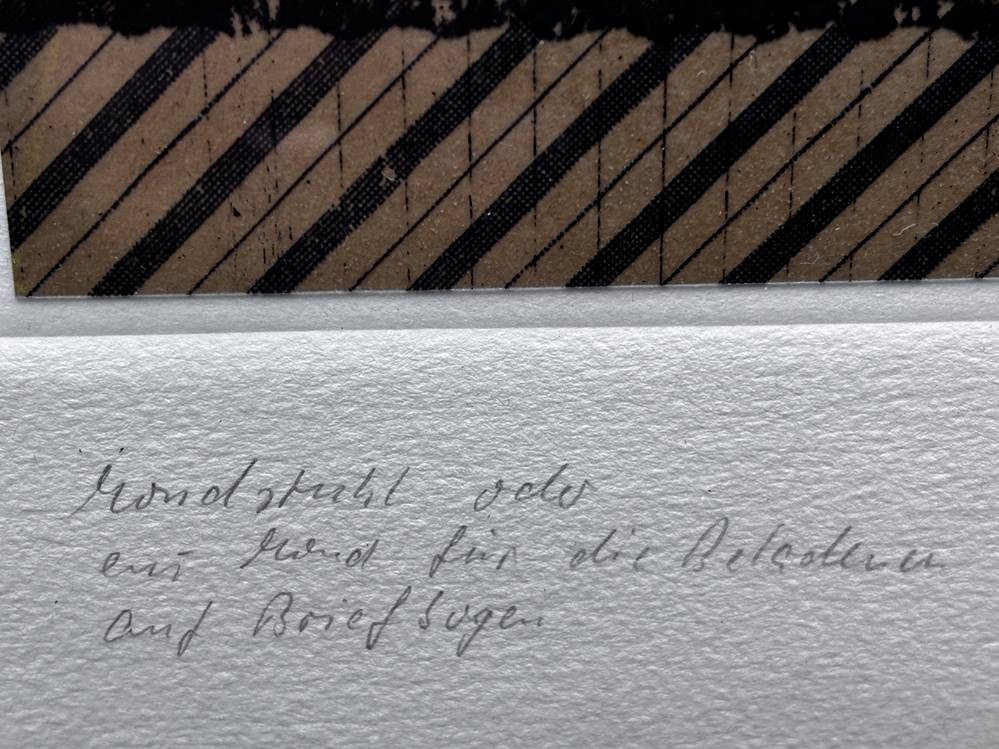 Mondstuhl oder
ein Mond für die Beladenen
auf Briefbögen